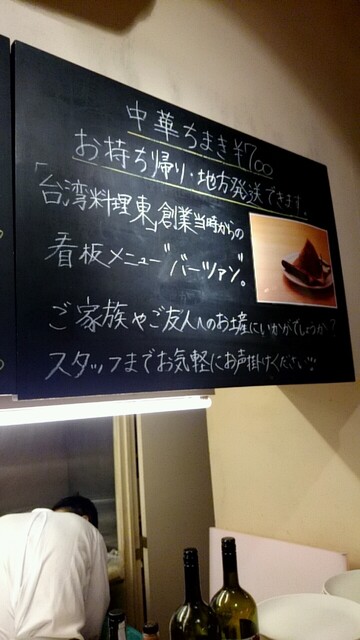 中華ちまき ¥700
お持ち帰り・地方発送できます。
「台湾料理 東」創業当時からの
看板メニュー"バーツァン"。
ご家族やご友人へのお土産にいかがでしょうか?
スタッフまでお気軽にお声掛けください!!